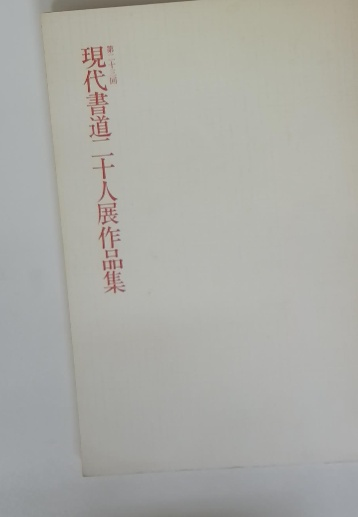 第二十三回
現代書道二十人展作品集